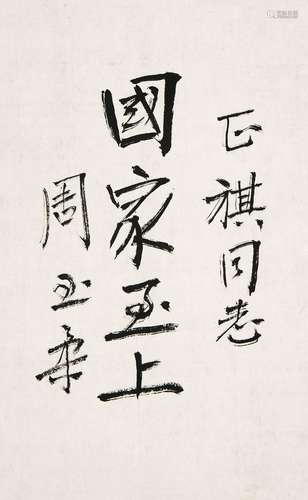 正祺同志
國家至上
周至柔